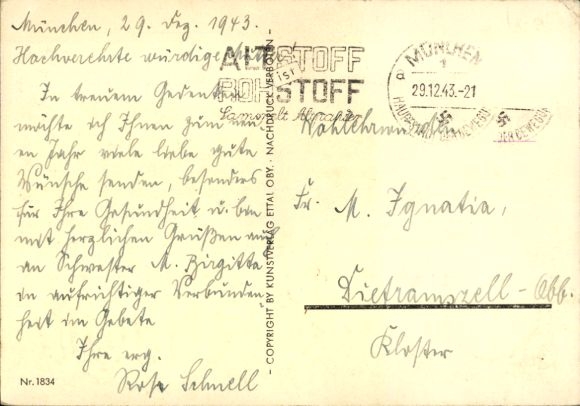 München, 29. Dez. 1943.
Hochverehrte würdige
In treuem Gedenken
möchte ich Ihnen zum neu-
en Jahr viele liebe gute
Wünsche senden, besonders
für Ihre Gesundheit u. bin
mit herzlichen Grüßen auch
an Schwester M. Birgitta
in aufrichtiger Verbunden-
heit im Gebete
Ihre erg.
Rosa Schnell
Nr. 1834
- COPYRIGHT BY KUNSTVERLAG ETTAL OBY. · NACHDRUCK VERBOTEN -
ALTSTOFF
IST
ROHSTOFF
Sammelt
MÜNCHEN
29.12.43.-21
HAUPTSTADT DER BEWEGUNG
DER BEWEGUNG
Wohlehrwürdige
Fr. M. Ignatia,
Dietramszell - Obb.
Kloster